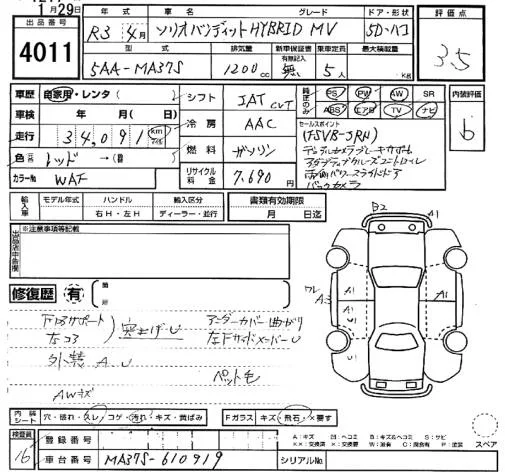 1月29日
出品番号
4011
年式 車名 グレード ドア・形状 評価点
R3 4月 ソリオバンディット HYBRID MV 5D-ハコ 3.5
型式 排気量 新車保証書 有無記入 乗車定員 最大積載量
5AA-MA37S 1200cc 無 5人 kg
車歴 自家用・レンタ( )
車検 年 月(日)
走行 34,091 km マイル
色 レッド→( )
カラーNo WAF
シフト IAT CVT
冷房 AAC
燃料 ガソリン
リサイクル料金 7,690円
純正のみ PS PW AW SR
ABS エアB TV ナビ
内装評価
b
セールスポイント
デュアルカメラブレーキサポート
アダプティブクルーズコントロール
両側パワースライドドア
バックカメラ
輸入車 モデル年式 ハンドル 輸入区分
右H・左H ディーラー・並行
書類有効期限
月 日迄
※注意事項等記載
修復歴 有 箇所
下回りサポート
左コア
突上げU
アンダーカバー曲がり
左Fサイドメンバー U
外装 A.U
ペット毛
AWキズ
B2
A1
ワレ
A3
A1
A1
U1
A1
U1
内装シート 穴・破れ・スレ・コゲ・汚れ・キズ・黄ばみ
Fガラス キズ・飛石・X要す
検査員
16
登録番号
車台番号 MA37S-610919
シリアルNo.
A:キズ M:ヘコミ B:キズ&ヘコミ S:サビ
スペア